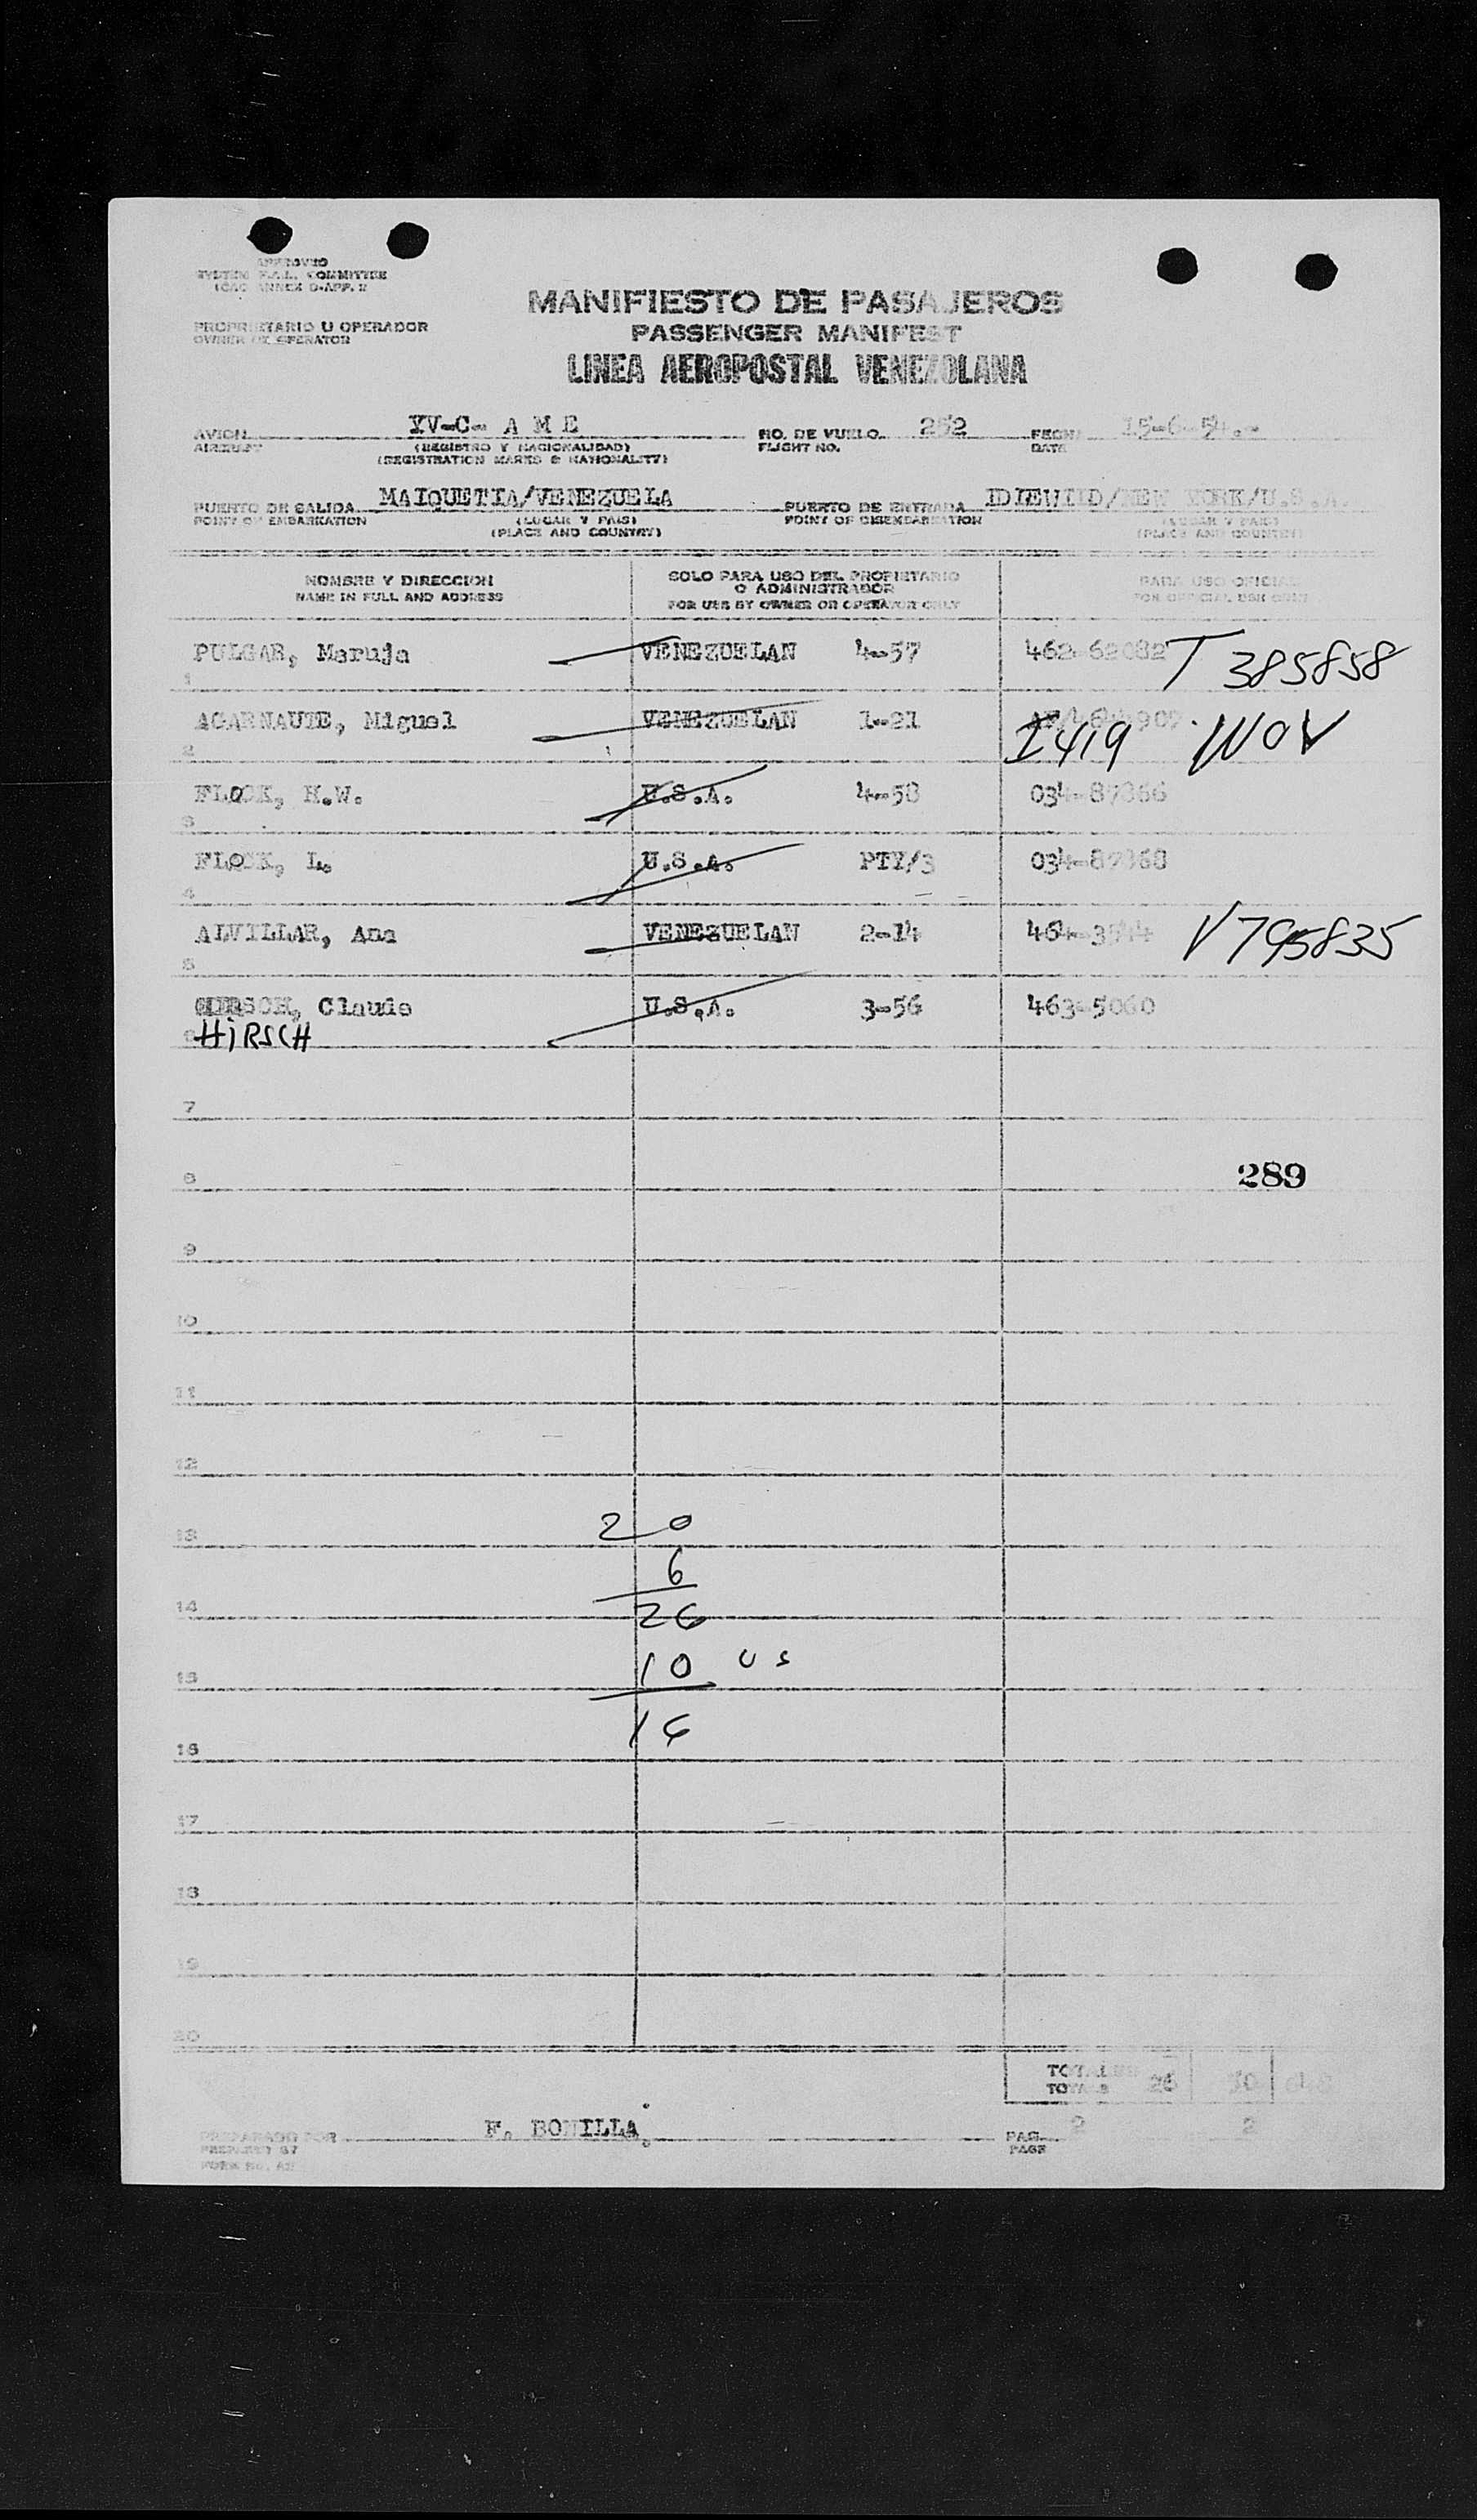 APPROVED
SYSTEM F.A.L. COMMITTEE
ICAO ANNEX 9-APP. 2
MANIFIESTO DE PASAJEROS
PASSENGER MANIFEST
LINEA AEROPOSTAL VENEZOLANA
PROPRIETARIO U OPERADOR
OWNER OR OPERATOR
AVION YV-C- A M E NO. DE VUELO 252 FECHA 15-6-54.-
AIRCRAFT (REGISTRO Y NACIONALIDAD) FLIGHT NO. DATE
(REGISTRATION MARKS & NATIONALITY)
PUERTO DE SALIDA MAIQUETIA/VENEZUELA PUERTO DE ENTRADA IDLEWILD/NEW YORK/U.S.A.
POINT OF EMBARKATION (LUGAR Y PAIS) POINT OF DISEMBARKATION (LUGAR Y PAIS)
(PLACE AND COUNTRY) (PLACE AND COUNTRY)
NOMBRE Y DIRECCION SOLO PARA USO DEL PROPIETARIO O ADMINISTRADOR PARA USO OFICIAL
NAME IN FULL AND ADDRESS FOR USE BY OWNER OR OPERATOR ONLY FOR OFFICIAL USE ONLY
PULGAR, Maruja VENEZUELAN 4-57 462-62082 T 385858
1
AGARNAUTE, Miguel VENEZUELAN 1-21
2 I419 WOV
FLOCK, H.W. U.S.A. 4-58 034-87866
3
FLOCK, L. U.S.A. PTY/3 034-87868
4
ALVILLAR, Ana VENEZUELAN 2-14 464- V795835
5
Claude U.S.A. 3-56 463-5060
6 HIRSCH
7
8 289
9
10
11
12
13 20
6
14 26
15 10 US
16 16
17
18
19
20
TOTALES 26 10
TOTALS
PREPARADO POR F. BONILLA. PAG. 2 2
PREPARED BY PAGE
FORM No. A2